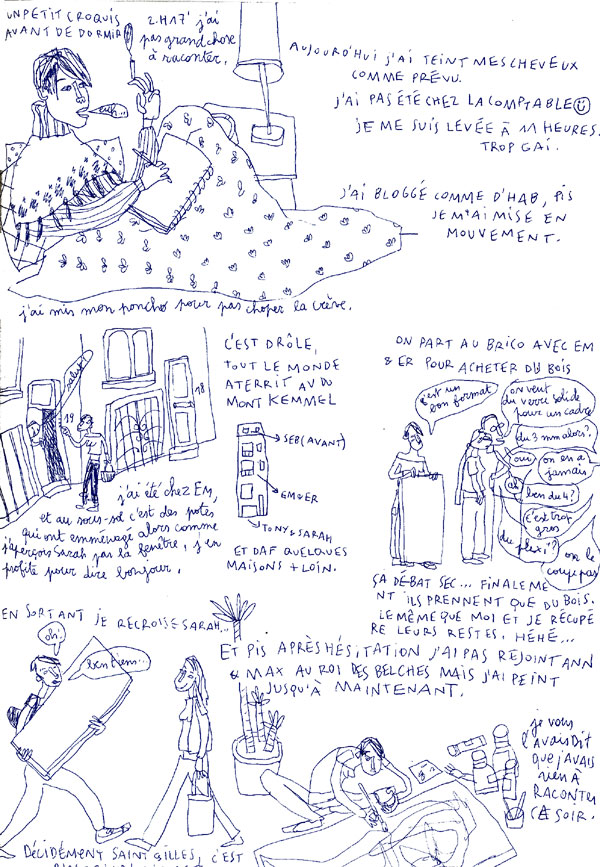 UN PETIT CROQUIS
AVANT DE DORMIR
2.H17' j'ai
pas grand chose
à raconter.
euh...
AUJOURD'HUI J'AI TEINT MES CHEVEUX
COMME PRÉVU.
J'AI PAS ÉTÉ CHEZ LA COMPTABLE
JE ME SUIS LEVÉE À 11 HEURES.
TROP GAI.
J'AI BLOGGÉ COMME D'HAB, PIS
JE M'AI MISE EN
MOUVEMENT.
j'ai mis mon poncho pour pas choper la crève.
salut!
19
18
j'ai été chez Em,
et au sous-sol c'est des potes
qui ont emménagé alors comme
j'aperçois Sarah par la fenêtre, j'en
profite pour dire bonjour.
C'EST DRÔLE,
TOUT LE MONDE
ATERRIT AV DU
MONT KEMMEL
SEB (AVANT)
EM & ER
TONY & SARAH
ET DAF QUELQUES
MAISONS + LOIN.
ON PART AU BRICO AVEC EM
& ER POUR ACHETER DU BOIS
c'est un
bon format
on veut
du verre solide
pour un cadre
du 3 mm alors?
oui
on en a
jamais
ah
ben du 4?
c'est trop
gros
du plexi?
on le
coupe pas
ÇA DÉBAT SEC... FINALEME
NT ILS PRENNENT QUE DU BOIS.
LE MÊME QUE MOI ET JE RÉCUPÉ
RE LEURS RESTES. HÉHÉ...
EN SORTANT JE RECROISE SARAH...
oh!
ben tiens...
ET PIS APRÈS HÉSITATION J'AI PAS REJOINT ANN
& MAX AU ROI DES BELCHES MAIS J'AI PEINT
JUSQU'À MAINTENANT.
je vous
l'avais dit
que j'avais
rien à
RACONTER
CE SOIR.
DÉCIDÉMENT SAINT GILLES, C'EST